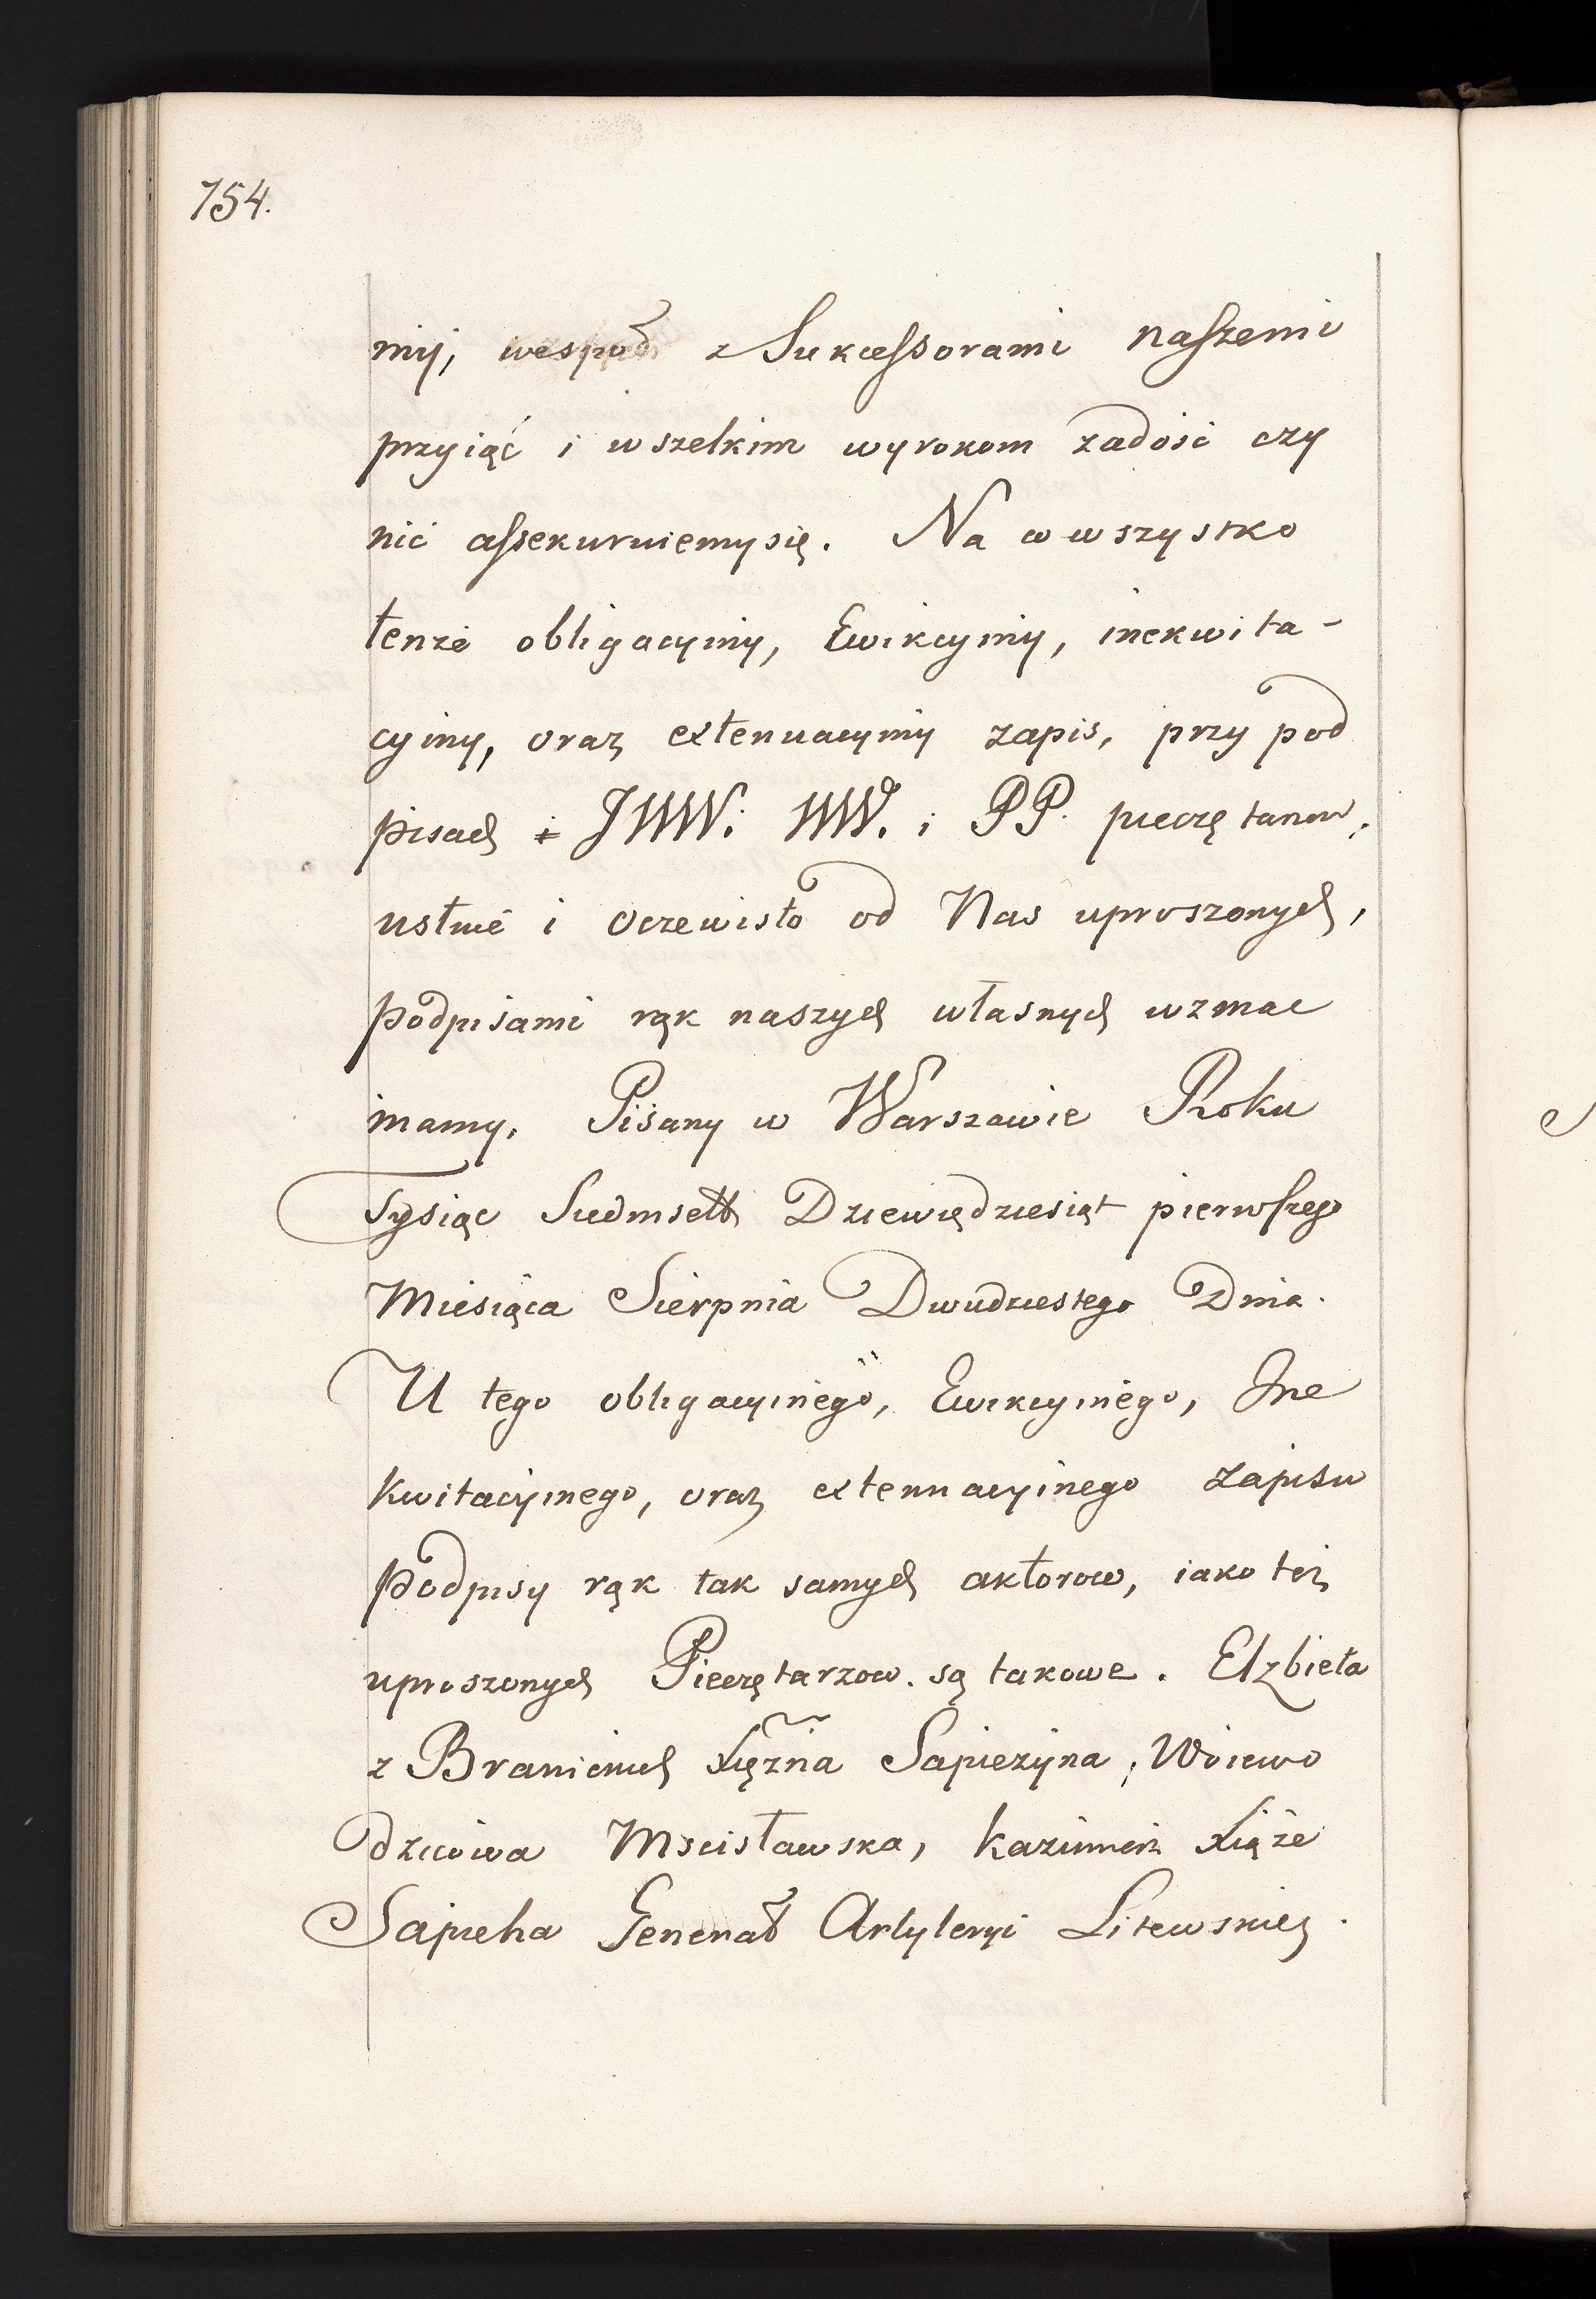 754.
mÿ, wespoł z Sukcessorami naszemi
przyiąć i wszelkim wyrokom zadość czy
nić assekuruiemysię. Na co wszystko
tenże obligacyiny, Ewikcyiny, inekwita-
cyiny, oraz extenuacyiny zapis, przy pod
pisach i JWW: WW. i PP. pieczętarzow,
ustnie i oczewisto od Nas uproszonych,
podpisami rąk naszych własnych wzmac
niamy. Pisany w Warszawie Roku
Tysiąc Siedmsett Dziewiędziesiąt pierwszego
Miesiąca Sierpnia Dwudziestego Dnia.
U tego obligacyinego, Ewikcyinego, Ine
kwitacyinego, oraz extenuacyinego zapisu
podpisy rąk tak samych aktorow, iako też
uproszonych Pieczętarzow. są takowe. Elzbieta
z Branickich Xiężna Sapieżyna, Woiewo
dzicowa Mscisławska, Kazimierz Xiąże
Sapieha Generał Artyleryi Litewskiey.